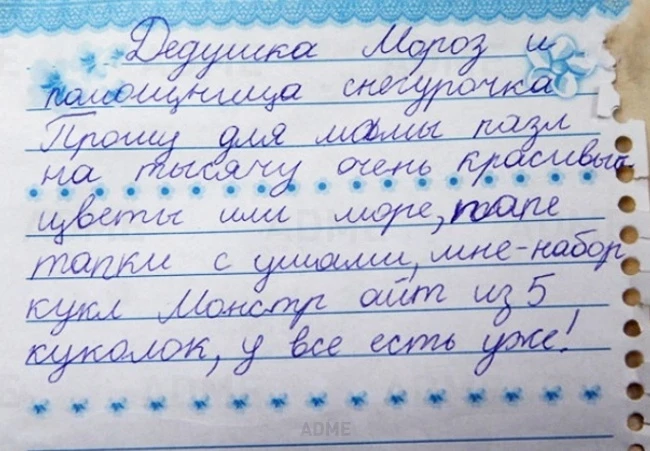 Дедушка Мороз и
помощница снегурочка
Прошу для мамы пазл
на тысячу очень красивый
цветы или море, папе
тапки с ушами, мне-набор
кукл Монстр айт из 5
куколок, у все есть уже!
ADME